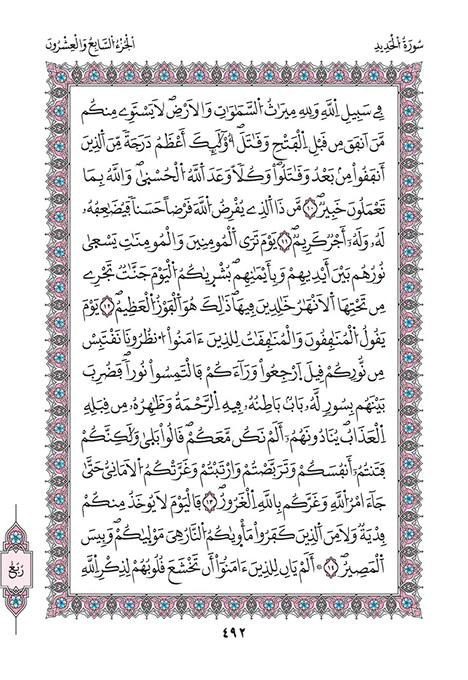 سُورَةُ الْحَدِيدِ
الْجُزْءُ السَّابِعُ وَالْعِشْرُونَ
فِي سَبِيلِ اِللَّهِ وَلِلهِ مِيرَٰثُ اُلسَّمَٰوَٰتِ وَالَارْضِ لَا يَسْتَوِے مِنكُم
مَّنَ اَنفَقَ مِن قَبْلِ اِلْفَتْحِ وَقَٰتَلَ أُوْلَٰٓئِكَ أَعْظَمُ دَرَجَةً مِّنَ اَلذِينَ
أَنفَقُواْ مِنۢ بَعْدُ وَقَٰتَلُواْ وَكُلّاً وَعَدَ اَللَّهُ اُلْحُسْنَىٰ وَاللَّهُ بِمَا
تَعْمَلُونَ خَبِيرٌ ١٠ مَّن ذَا اَلذِے يُقْرِضُ اُللَّهَ قَرْضاً حَسَناً فَيُضَٰعِفُهُۥ
لَهُۥ وَلَهُۥٓ أَجْرٌ كَرِيمٌ ١١ يَوْمَ تَرَى اَلْمُومِنِينَ وَالْمُومِنَٰتِ يَسْعَىٰ
نُورُهُم بَيْنَ أَيْدِيهِمْ وَبِأَيْمَٰنِهِم بُشْر۪ىٰكُمُ اُلْيَوْمَ جَنَّٰتٌ تَجْرِے
مِن تَحْتِهَا اَلَانْهَٰرُ خَٰلِدِينَ فِيهَا ذَٰلِكَ هُوَ اَلْفَوْزُ اُلْعَظِيمُ ١٢ يَوْمَ
يَقُولُ اُلْمُنَٰفِقُونَ وَالْمُنَٰفِقَٰتُ لِلذِينَ ءَامَنُواْ اُنظُرُونَا نَقْتَبِسْ
مِن نُّورِكُمْ قِيلَ اَرْجِعُواْ وَرَآءَكُمْ فَالْتَمِسُواْ نُوراً فَضُرِبَ
بَيْنَهُم بِسُورٍ لَّهُۥ بَابٌۢ بَاطِنُهُۥ فِيهِ اِلرَّحْمَةُ وَظَٰهِرُهُۥ مِن قِبَلِهِ
اِلْعَذَابُ يُنَادُونَهُمُۥٓ أَلَمْ نَكُن مَّعَكُمْ قَالُواْ بَلَىٰ وَلَٰكِنَّكُمْ
فَتَنتُمُۥٓ أَنفُسَكُمْ وَتَرَبَّصْتُمْ وَارْتَبْتُمْ وَغَرَّتْكُمُ اُلَامَانِيُّ حَتَّىٰ
جَآءَ امْرُ اُللَّهِ وَغَرَّكُم بِاللَّهِ اِلْغَرُورُ ١٣ فَالْيَوْمَ لَا يُوخَذُ مِنكُمْ
فِدْيَةٌ وَلَا مِنَ اَلذِينَ كَفَرُواْ مَأْو۪ىٰكُمُ اُلنَّارُ هِيَ مَوْل۪ىٰكُمْ وَبِيسَ
اَلْمَصِيرُ ١٤ ۞ أَلَمْ يَانِ لِلذِينَ ءَامَنُوٓاْ أَن تَخْشَعَ قُلُوبُهُمْ لِذِكْرِ اِللَّهِ
رُبُعْ
٤٩٢